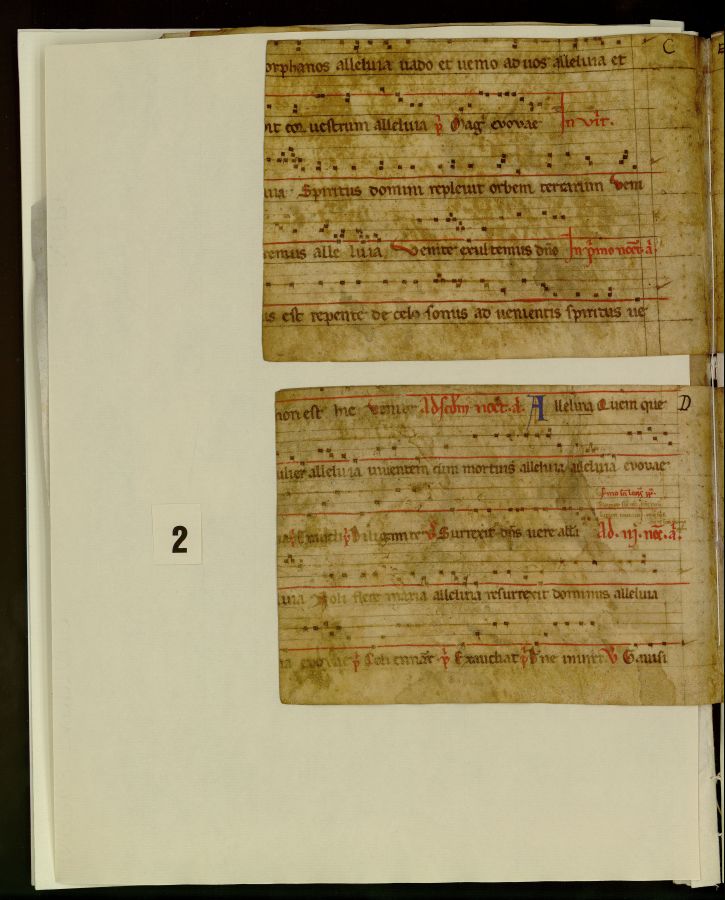 C
orphanos alleluia uado et uenio ad uos alleluia et
it cor uestrum alleluia p̄ Mag̅ evovae In vīr.
uia Spiritus domini repleuit orbem terrarum Veni
remus alle luia, Venite exultemus dño In p̄mo noct̄. a̅.
us est repente de celo sonus ad uenientis spiritus ue
D
non est hic venite Ad scđm noct̄. a̅. Alleluia Quem que
ulier alleluia uiuentem cum mortuis alleluia alleluia evovae
Diligam te Surrexit dñs uere Ad .iij. noc̄. a̅.
uia Noli flere maria alleluia resurrexit dominus alleluia
evovae p̄ Celi enarr̄āt p̄ Exaudiat p̄ Dñe in uirt̄ Gauisi
2